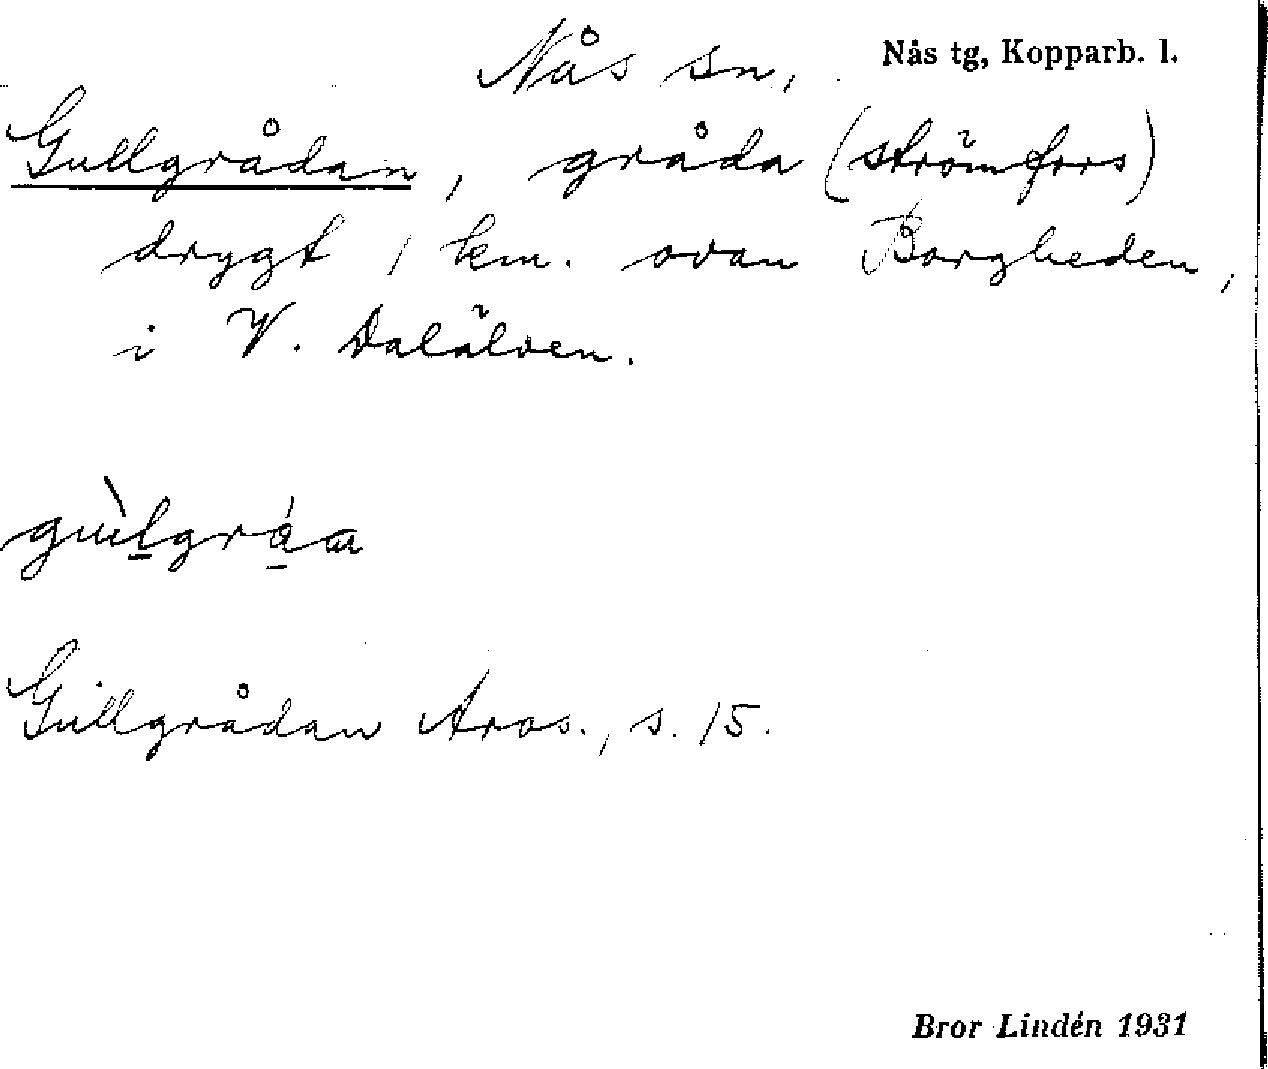 Nås sn, Nås tg, Kopparb. l.
Gullgrådan, gråda (strömfors)
drygt 1 km. ovan Borgheden,
i V. Dalälven.
Gullgrådan Aros., s. 15.
Bror Lindén 1931